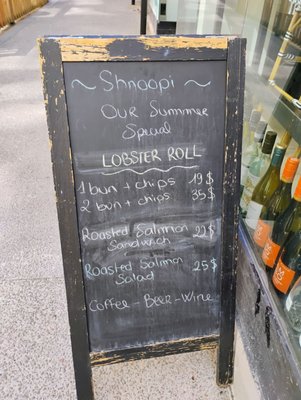 ~ Shnoopi ~
Our Summer
Special
LOBSTER ROLL
1 bun + chips 19$
2 bun + chips 35$
Roasted Salmon 22$
Sandwich
Roasted Salmon 25$
Salad
Coffee - Beer - Wine